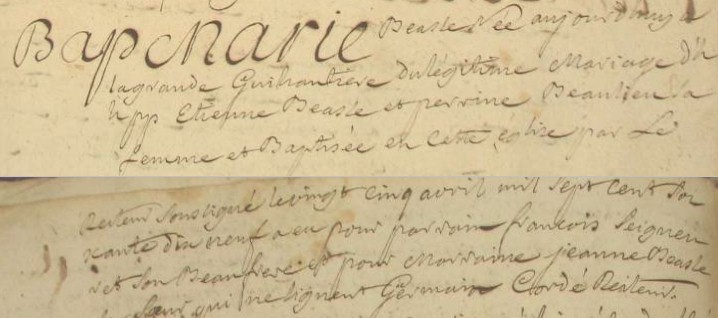 Bap Marie Beasle Née aujourdhuy a
lagrande Guihantiere dulégitime Mariage d'h
hpp Etienne Beasle et perrine Beaulieu Sa
femme et Baptisée en Cette église par Le
Recteur Soussigné levingt cinq avril mil sept cent Soi
xante dix neuf a eu pour parrain francois Seigneu
ret Son Beaufrere et pour Marraine jeanne Beasle
Sœur qui ne Signent Germain Cordé Recteur.